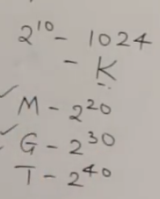 2¹⁰ - 1024
- K
✓ M - 2²⁰
✓ G - 2³⁰
T - 2⁴⁰